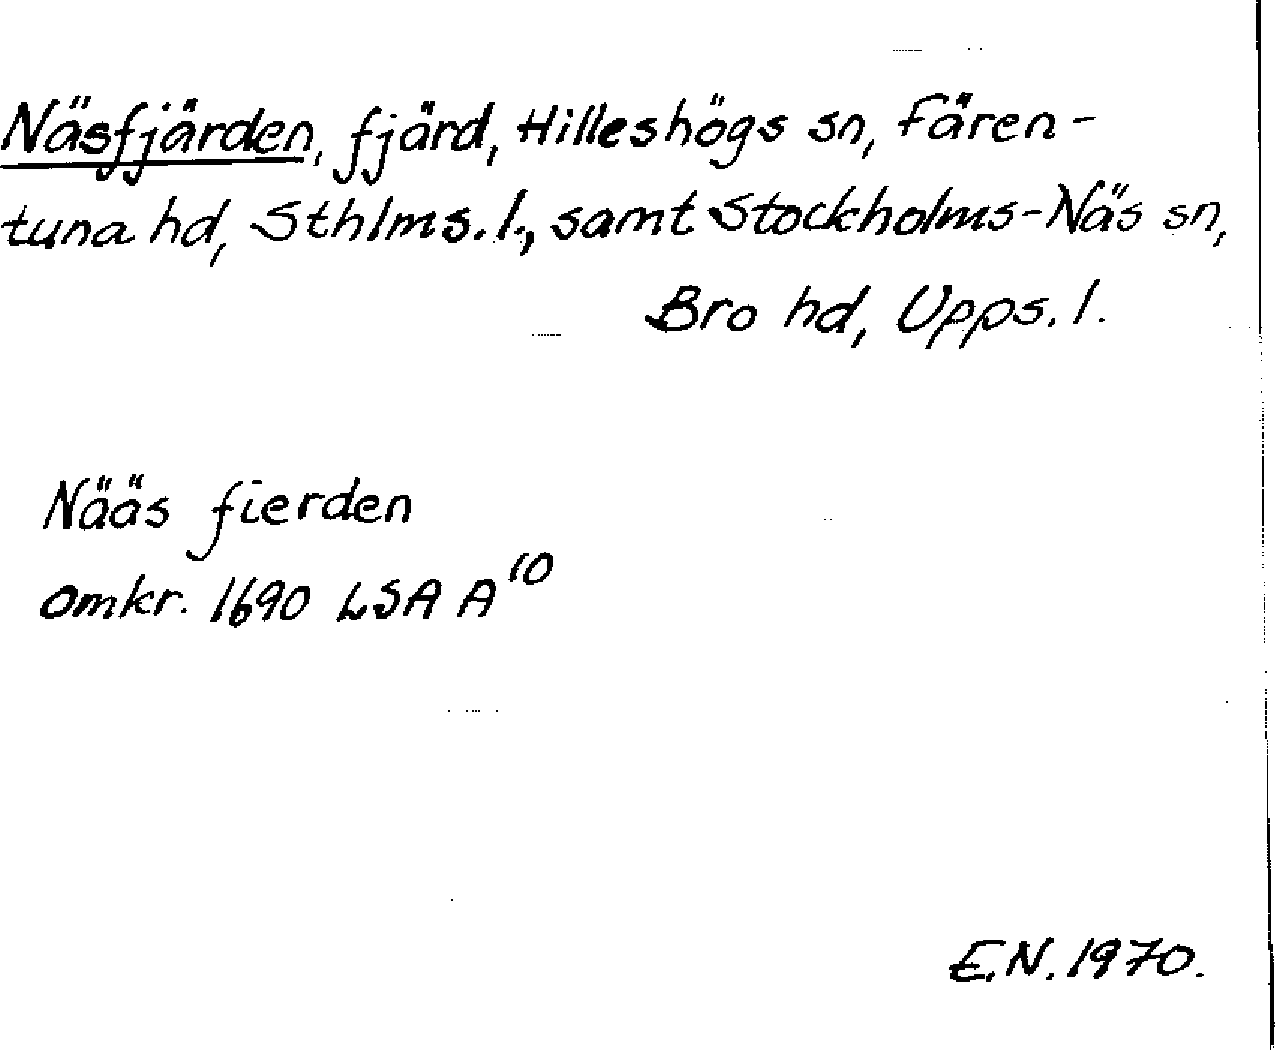 Näsfjärden, fjärd, Hilleshögs sn, Fären-
tuna hd, Sthlms. l., samt Stockholms-Näs sn,
Bro hd, Upps. l.
Nääs fierden
omkr. 1690 LSA A¹⁰
E.N. 1970.